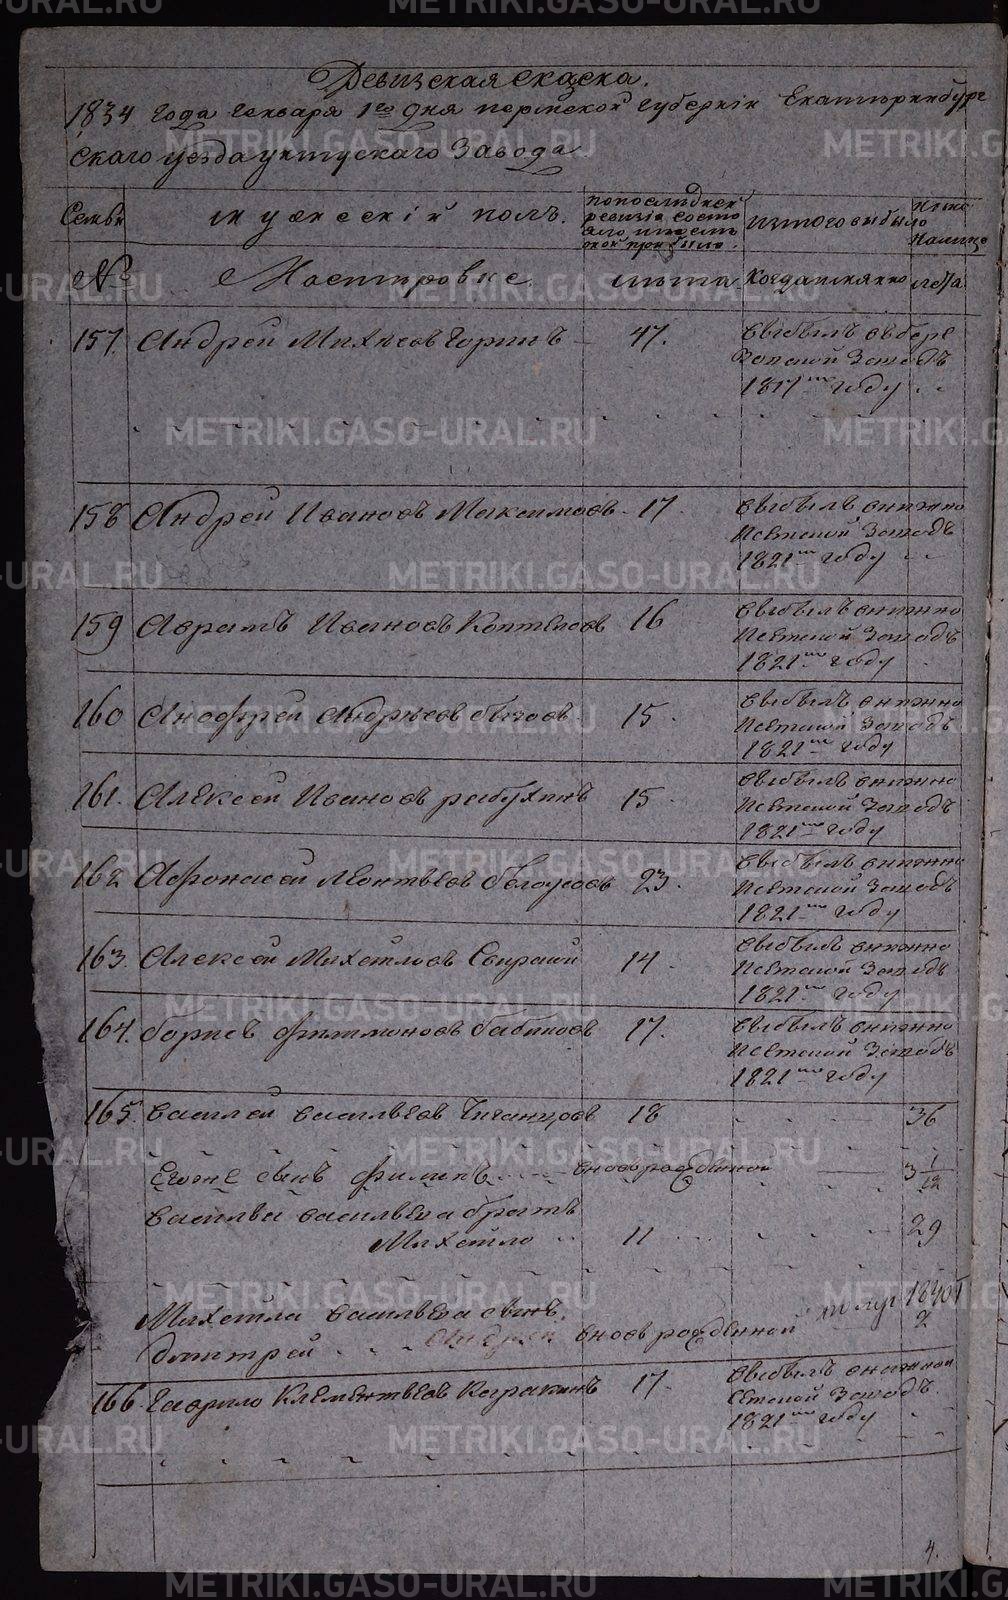 Ревизская скаска.
1834 года генваря 1го дня пермской губернии Екатеринбург
скаго уезда уктускаго завода
Семьи
мужеский полъ.
попоследней
ревизіи состо
яло, и после
той прибыло.
изтого выбыло
ныне
на лицо
№
Мастировке
лета
Когда имянно
лета
157. Андрей Михеев Горинъ 47. выбылъ в бере
зовской Заводъ
1817мъ году
158 Андрей Ивановъ Максимовъ 17. выбылъ в нижно
исетской Заводъ
1821мъ году
159 Аврамъ Ивановъ Коптеловъ 16 выбылъ в нижно
исетской Заводъ
1821мъ году
160 Анофрей Андреевъ 15. выбылъ в нижно
исетской Заводъ
1821мъ году
161. Алексей Ивановъ 15. выбылъ в нижно
исетской Заводъ
1821мъ году
162 Афонасей Леонтьевъ белоусовъ 23. выбылъ в нижно
исетской Заводъ
1821мъ году
163. Алексей Михайловъ 14. выбылъ в нижно
исетской Заводъ
1821мъ году
164. борисъ филимоновъ бабиковъ 17. выбылъ в нижно
исетской Заводъ
1821мъ году
165. василей васильевъ 18 36
Его же сынъ филипъ вновь рожденной 3 1/12
Василья васильева братъ
Михайло 11 29
Михайла васильева сынъ 1840
дмитрей Андрей вновь рожденной 2
166 Гаврило Клементьевъ 17. выбылъ в нижной
сетской Заводъ
1821мъ году
4.
METRIKI.GASO-URAL.RU